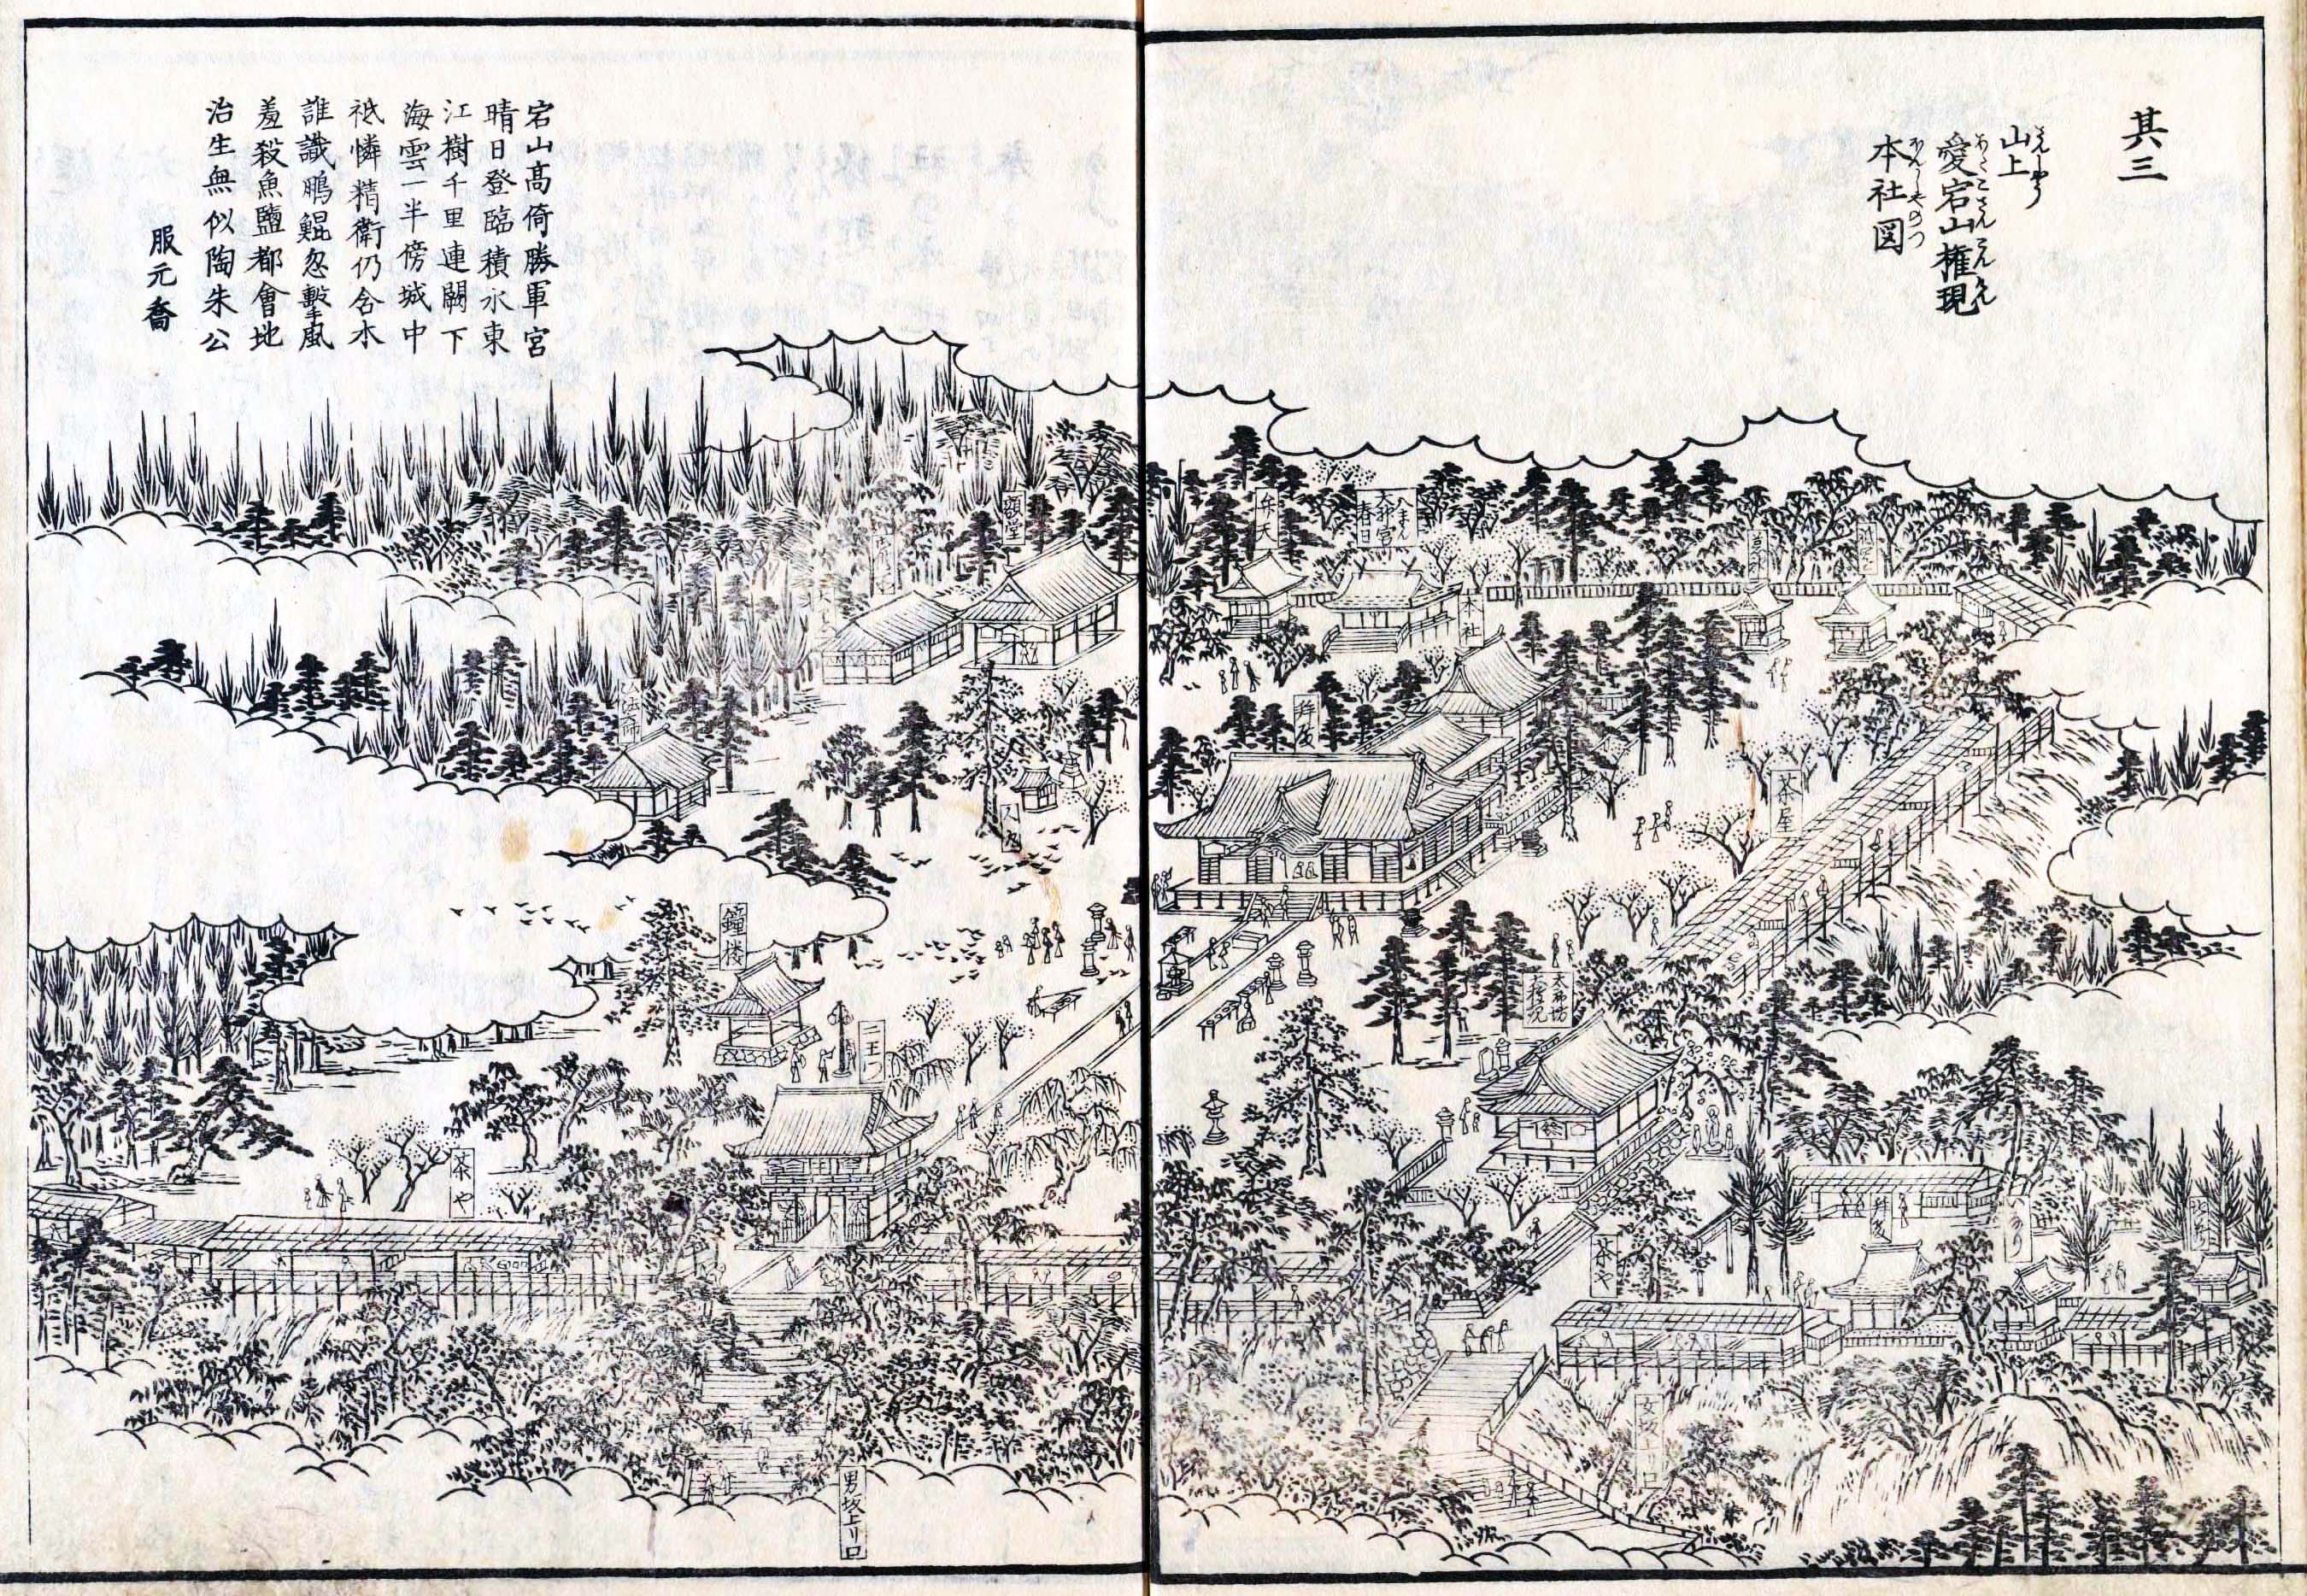 其三
山上
愛宕山権現
本社図
弁天
八まん
太神宮
春日
本社
拝殿
茶屋
太郎坊
権現
茶や
拝殿
いなり
女坂上り口
額堂
鐘楼
二王門
茶や
男坂上リ口
宕山高倚勝軍宮
晴日登臨積水東
江樹千里連闕下
海雲一半傍城中
祗憐精衛仍含木
誰識鵬鯤忽擊風
羞殺魚鹽都會地
治生無似陶朱公
服元喬